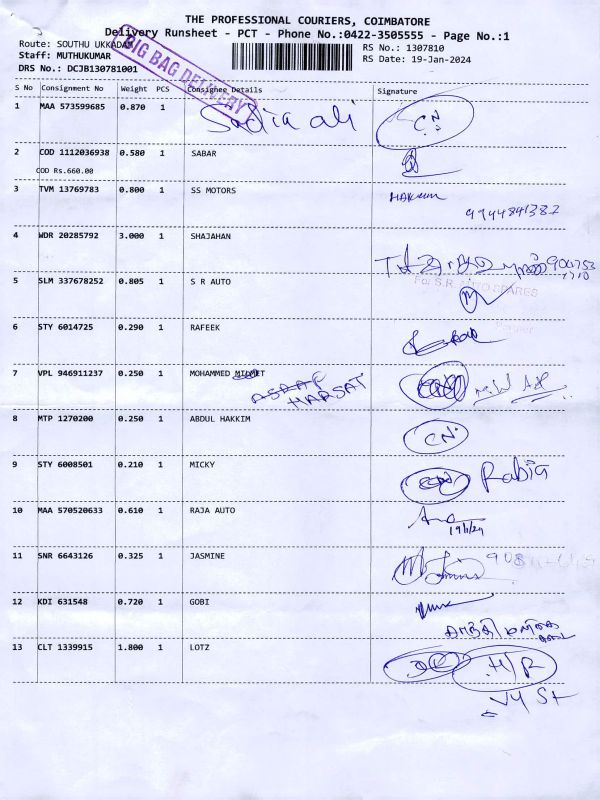 THE PROFESSIONAL COURIERS, COIMBATORE
Delivery Runsheet - PCT - Phone No.:0422-3505555 - Page No.:1
Route: SOUTHU UKKADAM
RS No.: 1307810
Staff: MUTHUKUMAR
RS Date: 19-Jan-2024
DRS No.: DCJB130781001
BIG BAG DELIVERY
S No Consignment No Weight PCS Consignee Details Signature
1 MAA 573599685 0.870 1 Sadia ali C.N
2 COD 1112036938 0.580 1 SABAR
COD Rs.660.00
3 TVM 13769783 0.800 1 SS MOTORS HAKKIM
9944841382
4 WDR 20285792 3.000 1 SHAJAHAN
5 SLM 337678252 0.805 1 S R AUTO For S.R. AUTO SPARES
6 STY 6014725 0.290 1 RAFEEK
7 VPL 946911237 0.250 1 MOHAMMED
HARSAT
8 MTP 1270200 0.250 1 ABDUL HAKKIM CN
9 STY 6008501 0.210 1 MICKY Rabia
10 MAA 570520633 0.610 1 RAJA AUTO
19/1/24
11 SNR 6643126 0.325 1 JASMINE
12 KDI 631548 0.720 1 GOBI
13 CLT 1339915 1.800 1 LOTZ H/R